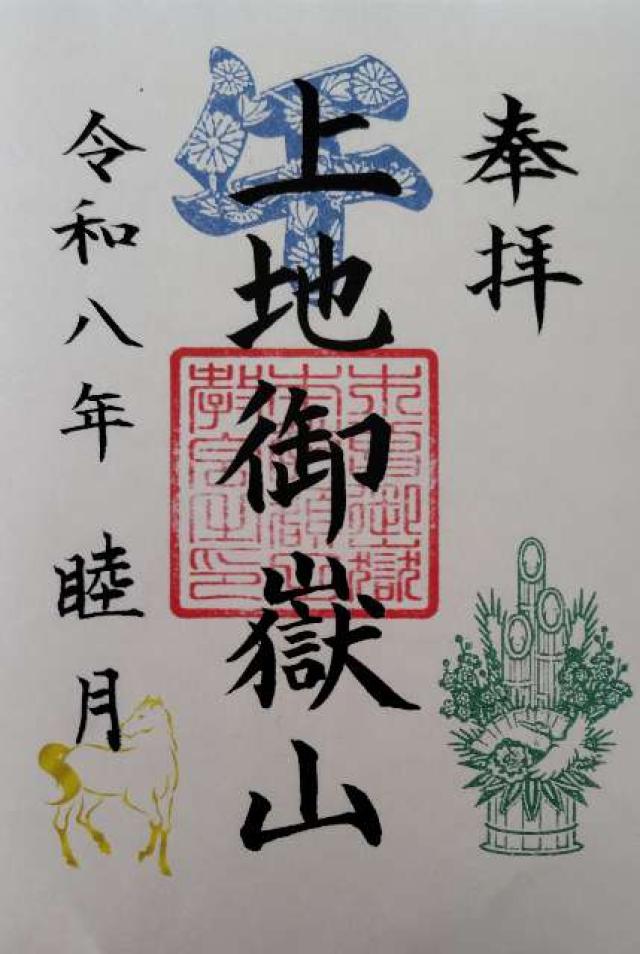 奉拝
午
上地御嶽山
令和八年 睦月